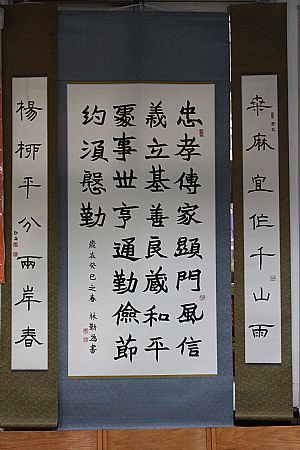 桒麻宜作千山雨
癸巳
忠孝傳家顯門風信
義立基善良和平
處事世亨通勤儉節
約須慇勤
歲在癸巳之春 林勤為書
楊柳平分兩岸春